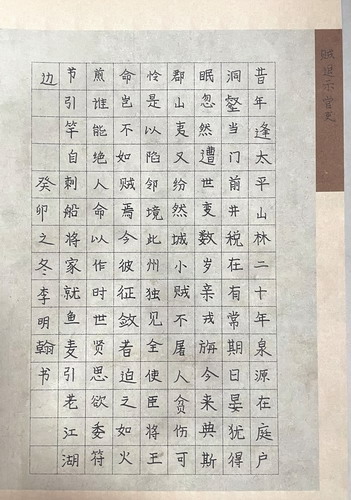 贼退示官吏
昔年逢太平山林二十年泉源在庭户
洞壑当门前井税在有常期日晏犹得
眠忽然遭世变数岁亲戎旃今来典斯
郡山夷又纷然城小贼不屠人贫伤可
怜是以陷邻境此州独见全使臣将王
命岂不如贼焉今彼征敛者迫之如火
煎谁能绝人命以作时世贤思欲委符
节引竿自刺船将家就鱼麦引老江湖
边 癸卯之冬李明翰书